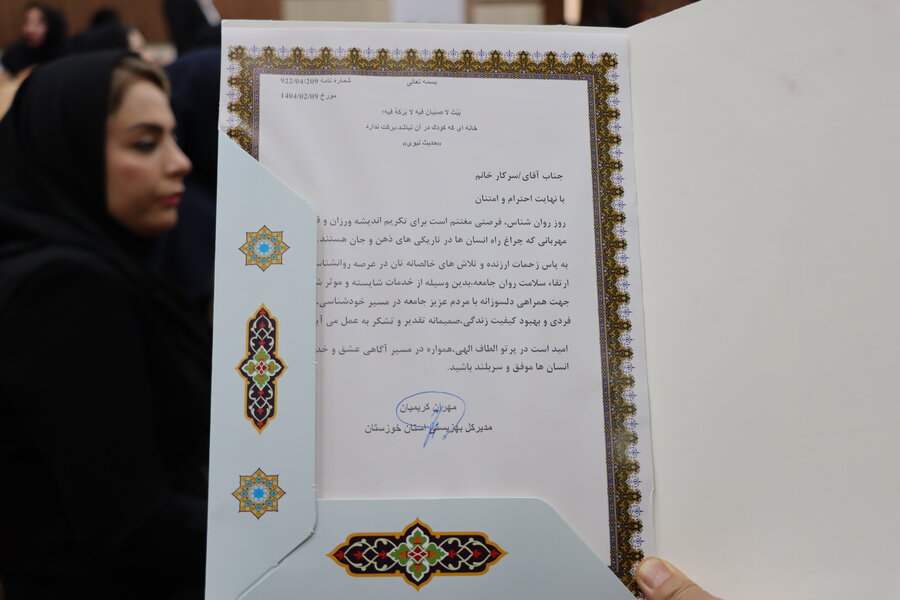 بسمه تعالی
شماره نامه 922/04/209
مورخ 1404/02/09
بَیْتٌ لا صِبْیانَ فیه لا بَرَکَةَ فیه؛
خانه ای که کودک در آن نباشد،برکت ندارد
«حدیث نبوی»
جناب آقای/سرکار خانم
با نهایت احترام و امتنان
روز روان شناس، فرصتی مغتنم است برای تکریم اندیشه ورزان و
مهربانی که چراغ راه انسان ها در تاریکی های ذهن و جان هستند.
به پاس زحمات ارزنده و تلاش های خالصانه تان در عرصه روانشناسی
ارتقاء سلامت روان جامعه،بدین وسیله از خدمات شایسته و موثر
جهت همراهی دلسوزانه با مردم عزیز جامعه در مسیر خودشناسی،
فردی و بهبود کیفیت زندگی،صمیمانه تقدیر و تشکر به عمل می
امید است در پرتو الطاف الهی،همواره در مسیر آگاهی عشق و
انسان ها موفق و سربلند باشید.
مهران کریمیان
مدیرکل بهزیستی استان خوزستان